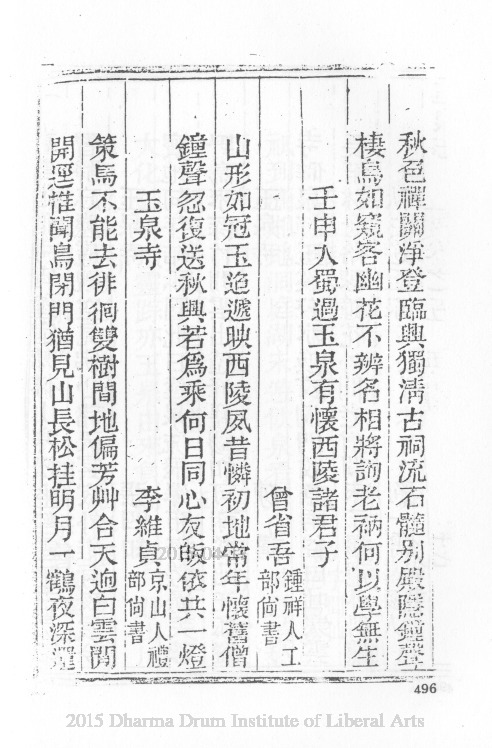 秋色禪關淨登臨興獨清古祠流石髓別殿隱鐘聲
棲鳥如窺客幽花不辨名相將詢老衲何以學無生
壬申入蜀過玉泉有懷西陵諸君子
曾省吾鍾祥人工部尙書
山形如冠玉迤遞映西陵夙昔憐初地當年懷舊僧
鐘聲忽復送秋興若爲乘何日同心友皈依共一燈
玉泉寺
李維貞京山人禮部尙書
策馬不能去徘徊雙樹間地偏芳艸合天逈白雲閒
開逕惟聞鳥閉門猶見山長松挂明月一鶴夜深還
496
2015 Dharma Drum Institute of Liberal Arts